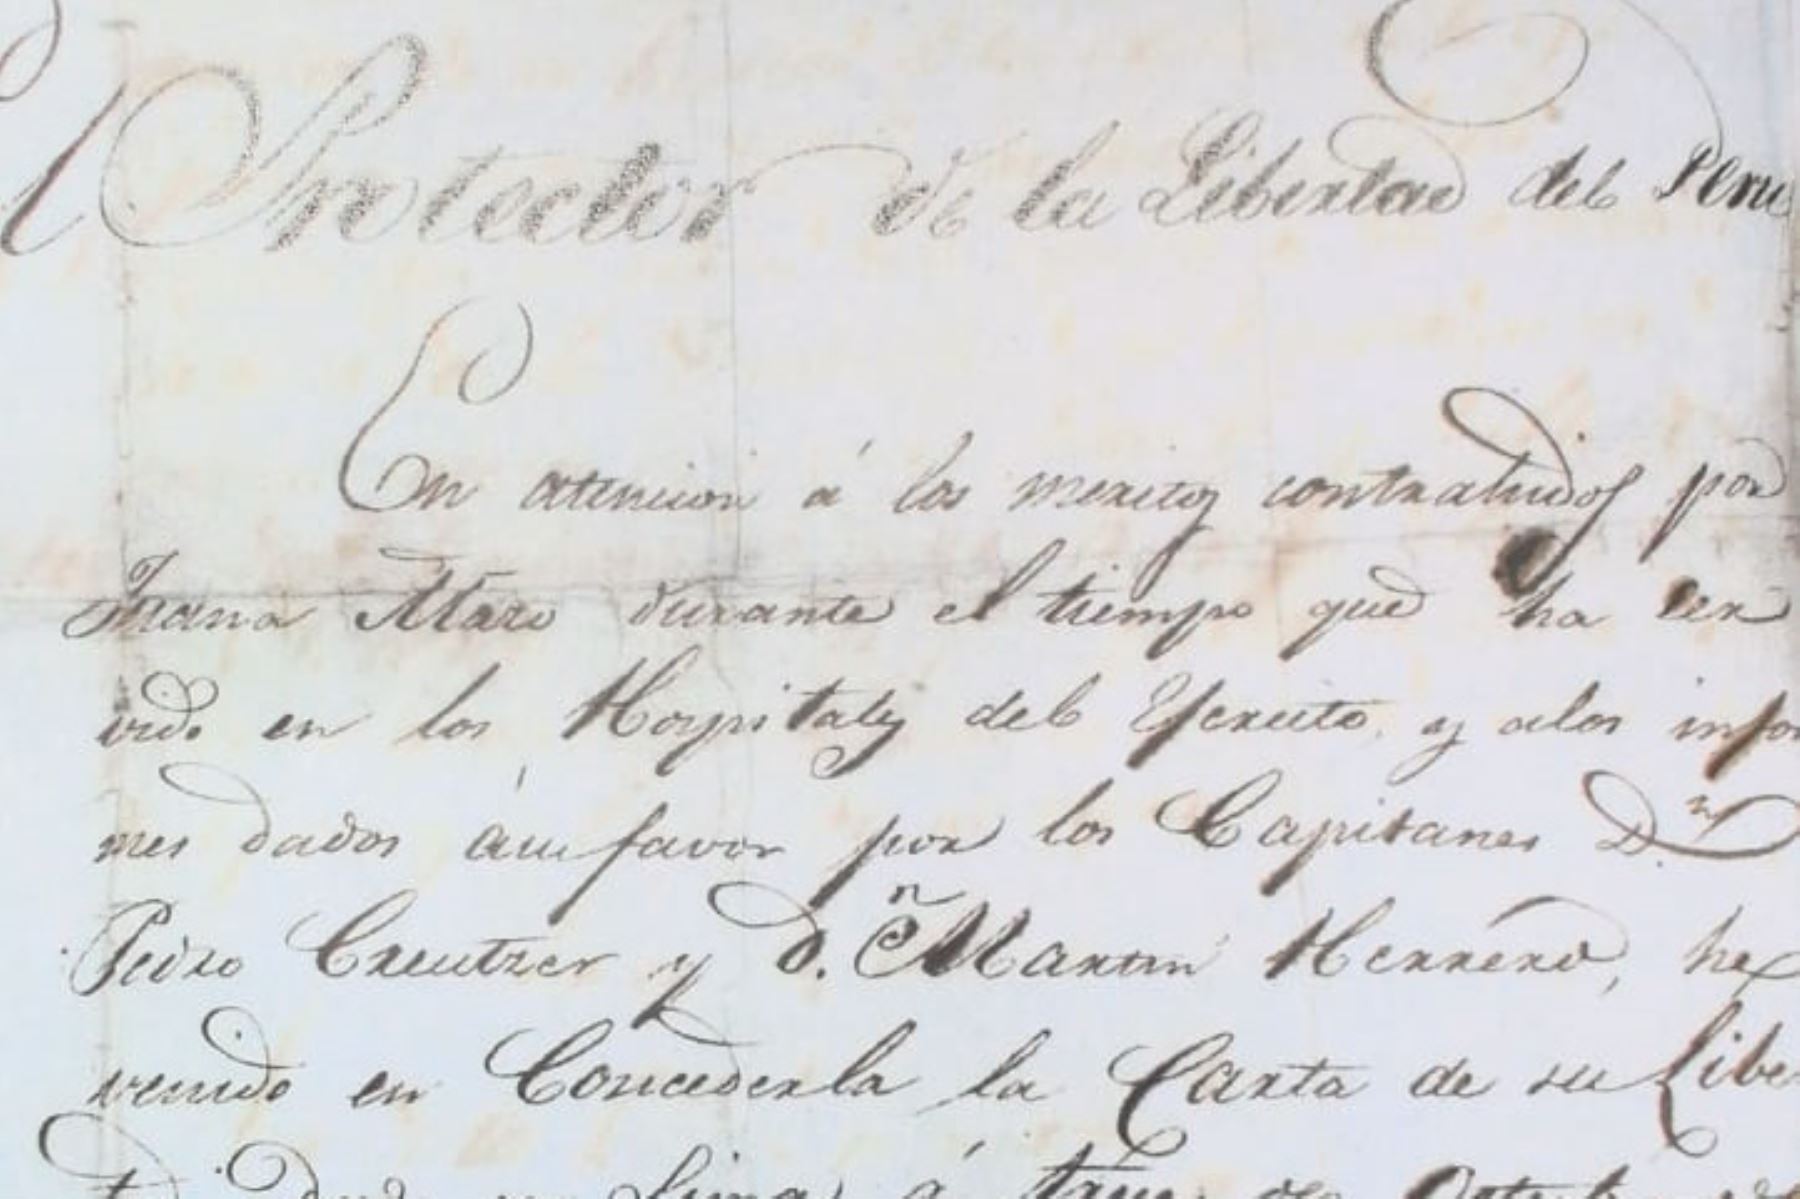 El Protector de la Libertad del Peru
En atencion á los meritos contrahidos por
Juana Alfaro durante el tiempo que ha ser
vido en los Hospitales del Ejercito, y alos infor
mes dados ásu favor por los Capitanes D.n
Pedro Creutzer y D.n Martin Herrero, he
venido en Concederla la Carta de su Liber
dada en Lima á trece de Octubre